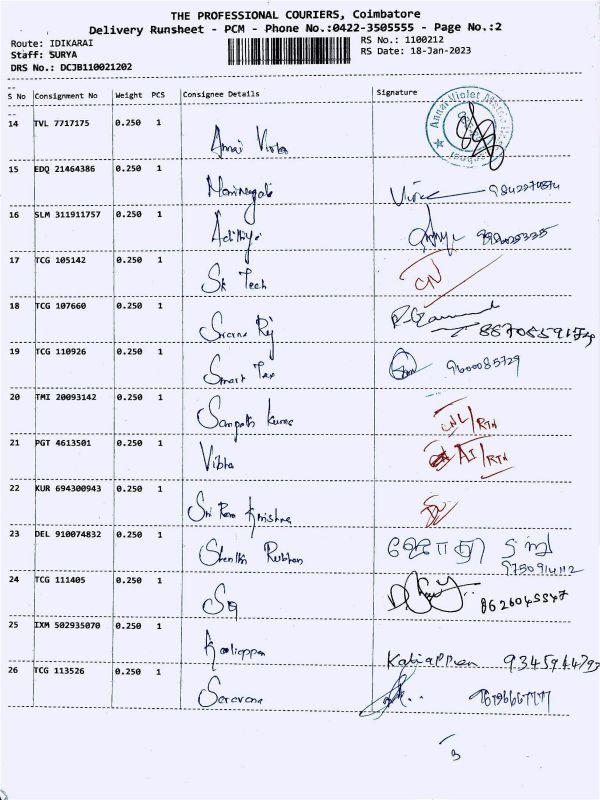 THE PROFESSIONAL COURIERS, Coimbatore
Delivery Runsheet - PCM - Phone No.:0422-3505555 - Page No.:2
Route: IDIKARAI
RS No.: 1100212
Staff: SURYA
RS Date: 18-Jan-2023
DRS No.: DCJB110021202
S No Consignment No Weight PCS Consignee Details Signature
14 TVL 7717175 0.250 1 Annai
Annai Violet
15 EDQ 21464386 0.250 1
16 SLM 311911757 0.250 1
17 TCG 105142 0.250 1 SK Tech
18 TCG 107660 0.250 1
19 TCG 110926 0.250 1 Smart Tex 9600085729
20 TMI 20093142 0.250 1 Sampath Kumar /RTN
21 PGT 4613501 0.250 1 Vibha AI/RTN
22 KUR 694300943 0.250 1 Sri Ram Krishna
23 DEL 910074832 0.250 1
9750914112
24 TCG 111405 0.250 1 8626045547
25 IXM 502935070 0.250 1 Kaliappan Kaliappan
26 TCG 113526 0.250 1 Saravana
3